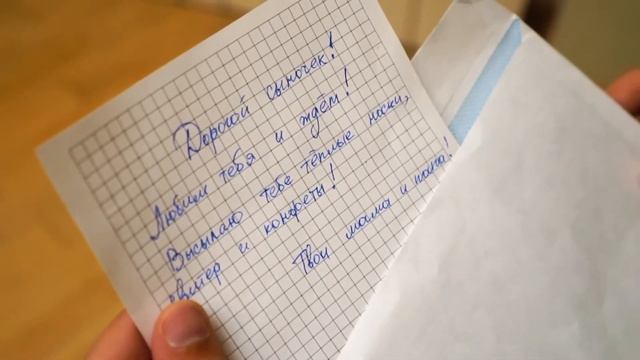 Дорогой сыночек!
Любим тебя и ждём!
Высылаю тебе тёплые носки,
свитер и конфеты!
Твои мама и папа!